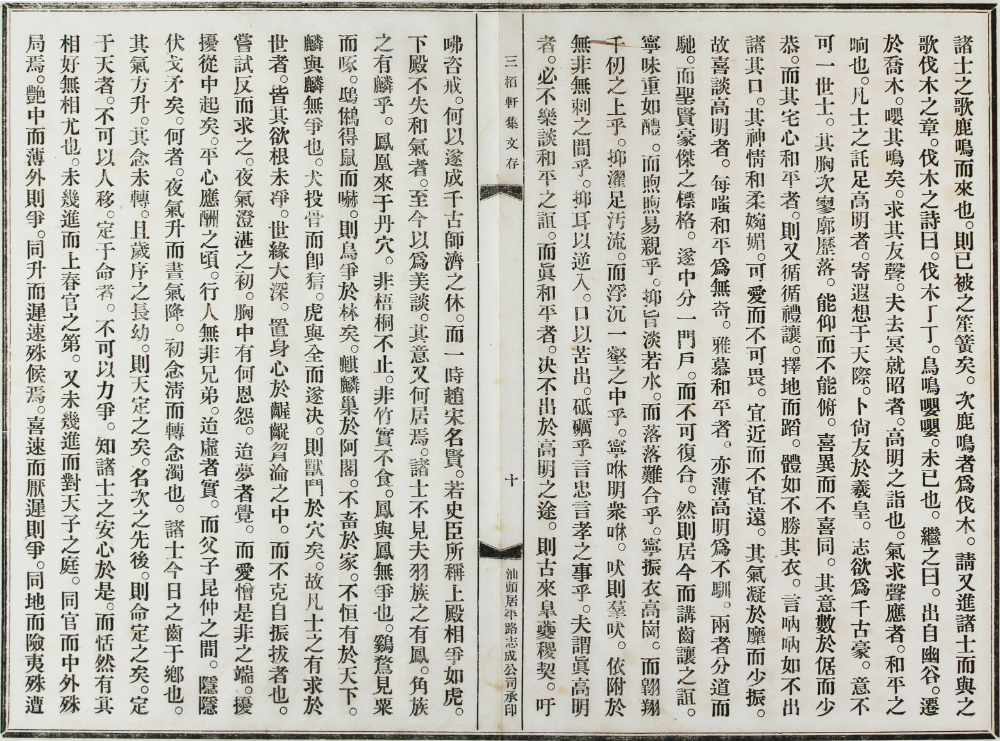 諸士之歌鹿鳴而來也。則已被之笙簧矣。次鹿鳴者爲伐木。請又進諸士而與之
歌伐木之章。伐木之詩曰。伐木丁丁。鳥鳴嚶嚶。未已也。繼之曰。出自幽谷。遷
於喬木。嚶其鳴矣。求其友聲。夫去冥就昭者。高明之詣也。氣求聲應者。和平之
响也。凡士之託足高明者。寄遐想于天際。卜尙友於羲皇。志欲爲千古豪。意不
可一世士。其胸次寥廓歷落。能仰而不能俯。喜異而不喜同。其意數於倨而少
恭。而其宅心和平者。則又循循禮讓。擇地而蹈。體如不勝其衣。言吶吶如不出
諸其口。其神情和柔婉媚。可愛而不可畏。宜近而不宜遠。其氣凝於靡而少振。
故喜談高明者。每嗤和平爲無奇。雅慕和平者。亦薄高明爲不馴。兩者分道而
馳。而聖賢豪傑之標格。遂中分一門戶。而不可復合。然則居今而講齒讓之誼。
寧味重如醴。而煦煦易親乎。抑旨淡若水。而落落難合乎。寧振衣高崗。而翱翔
千仞之上乎。抑濯足汚流。而浮沉一壑之中乎。寧咻明衆咻。吠則羣吠。依附於
無非無刺之間乎。抑耳以逆入。口以苦出。砥礪乎言忠言孝之事乎。夫謂眞高明
者。必不樂談和平之誼。而眞和平者。决不出於高明之途。則古來臯夔稷契。吁
三栢軒集文存
十
汕頭居平路志成公司承印
咈咨戒。何以遂成千古師濟之休。而一時趙宋名賢。若史臣所稱上殿相爭如虎。
下殿不失和氣者。至今以爲美談。其意又何居焉。諸士不見夫羽族之有鳳。角族
之有麟乎。鳳凰來于丹穴。非梧桐不止。非竹實不食。鳳與鳳無爭也。鷄鶩見粟
而啄。鴟鵂得鼠而嚇。則鳥爭於林矣。麒麟巢於阿閣。不畜於家。不恒有於天下。
麟與麟無爭也。犬投骨而卽狺。虎與全而遂决。則獸鬥於穴矣。故凡士之有求於
世者。皆其欲根未淨。世緣大深。置身心於齷齪㫚淪之中。而不克自振拔者也。
嘗試反而求之。夜氣澄湛之初。胸中有何恩怨。迨夢者覺。而愛憎是非之端。擾
擾從中起矣。平心應酬之頃。行人無非兄弟。迨虛者實。而父子昆仲之間。隱隱
伏戈矛矣。何者。夜氣升而晝氣降。初念淸而轉念濁也。諸士今日之齒于鄕也。
其氣方升。其念未轉。且歲序之長幼。則天定之矣。名次之先後。則命定之矣。定
于天者。不可以人移。定于命者。不可以力爭。知諸士之安心於是。而恬然有眞
相好無相尤也。未幾進而上春官之第。又未幾進而對天子之庭。同官而中外殊
局焉。艷中而薄外則爭。同升而遲速殊候焉。喜速而厭遲則爭。同地而險夷殊遭